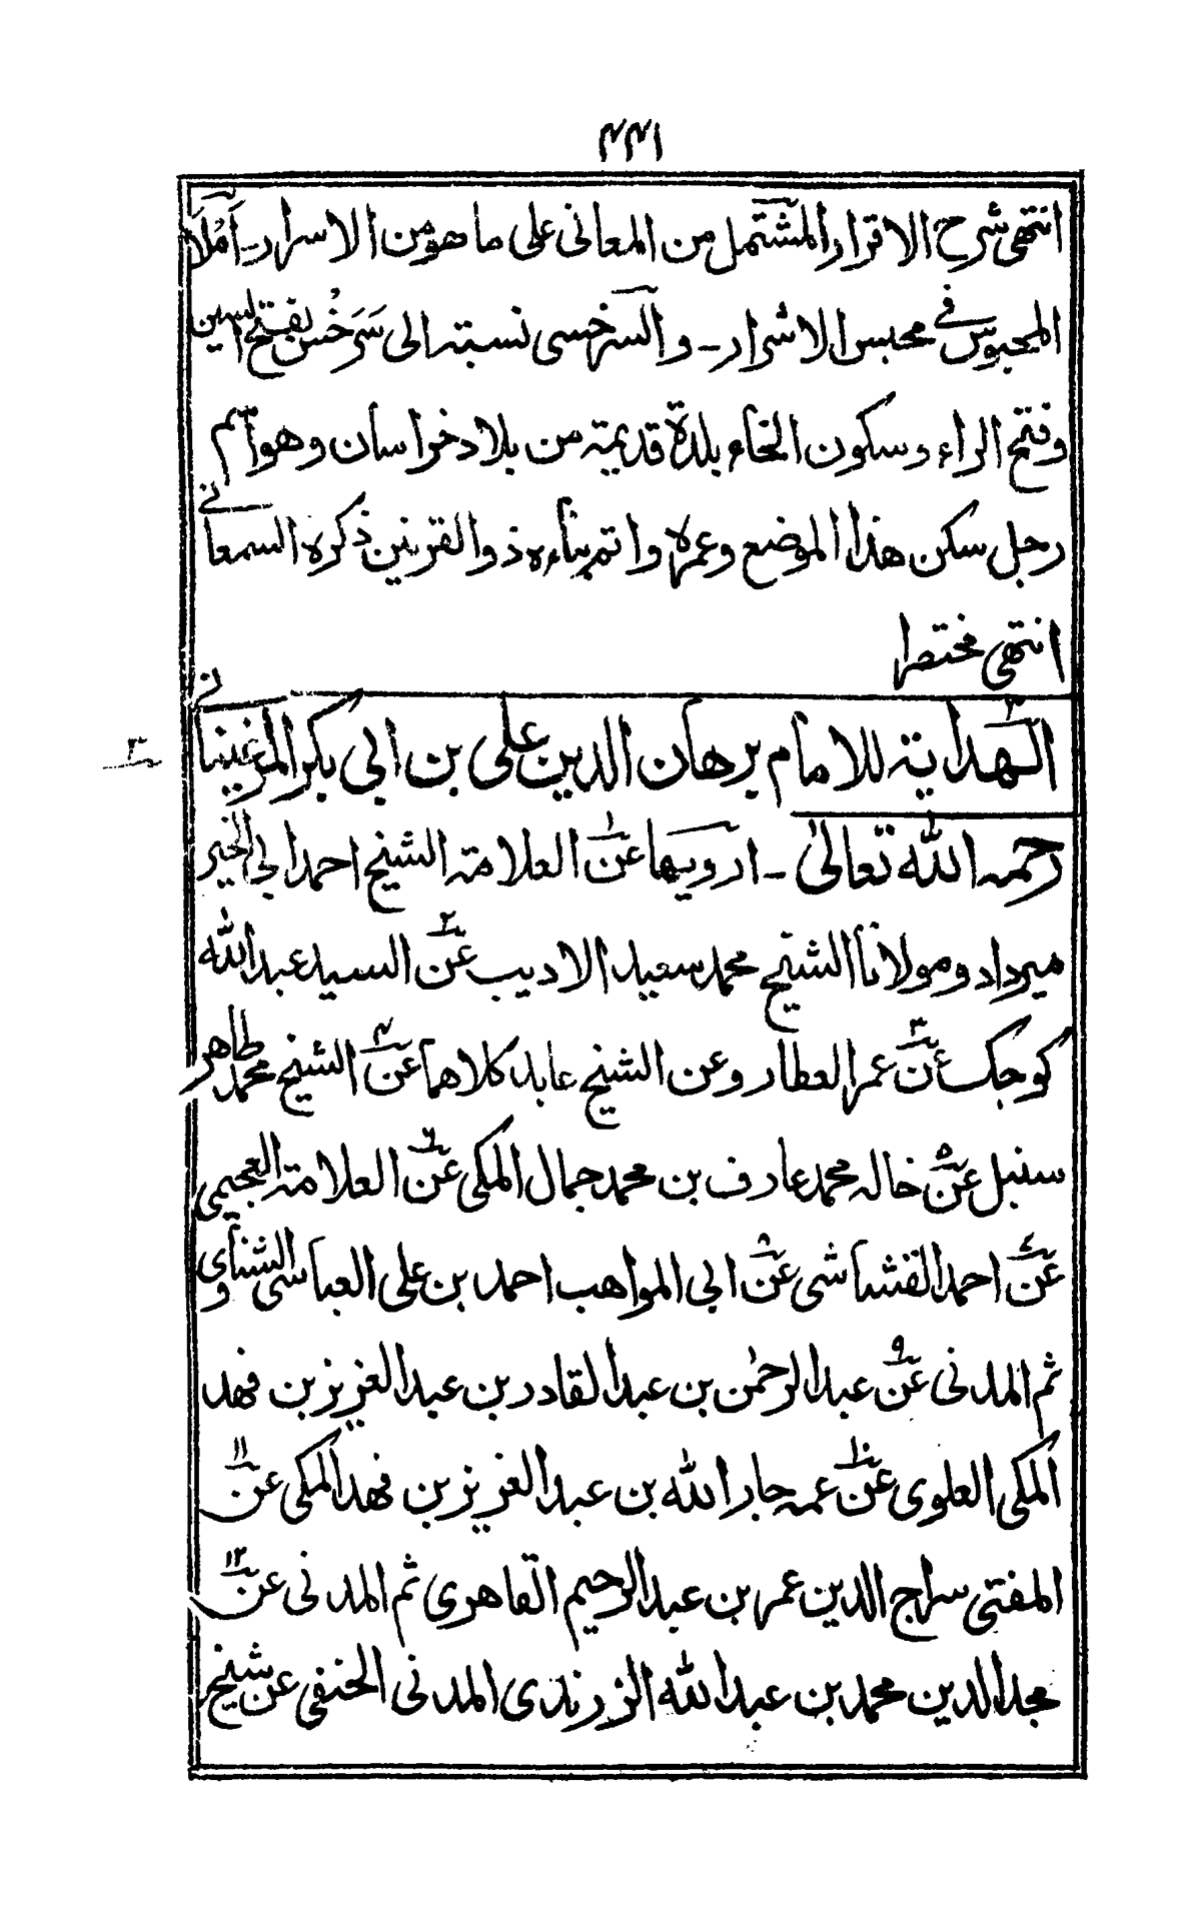 ۴۴۱
انتهى شرح الاقرار المشتمل من المعانى على ما هو من الاسرار۔ اَمْلَاَ
المحبوس فى محبس الاشرار۔ والسرخسى نسبته الى سَرَخْس بفتح السين
وفتح الراء وسكون الخاء بلدة قديمة من بلاد خراسان وهو اسم
رجل سكن هذا الموضع وعمره واتم بناءه ذوالقرنين ذكره السمعانى
انتهى مختصرا
۳ الهداية للامام برهان الدين على بن ابى بكر المرغينانى
رحمه الله تعالىٰ۔ ارويها عن۱ العلامة الشيخ احمد ابى الخير
ميرداد ومولانا الشيخ محمد سعيد الاديب عن۲ السيد عبدالله
كوجك عن۳ عمر العطار وعن الشيخ عابد كلاهما عن۴ الشيخ محمد طاهر
سنبل عن۵ خاله محمد عارف بن محمد جمال المكى عن۶ العلامة العجيمى
عن۷ احمد القشاشى عن۸ ابى المواهب احمد بن على العباسى الشناوى
ثم المدنى عن۹ عبدالرحمٰن بن عبدالقادر بن عبدالعزيز بن فهد
المكى العلوى عن۱۰ عمه جار الله بن عبدالعزيز بن فهد المكى عن۱۱
المفتى سراج الدين عمر بن عبدالرحيم القاهرى ثم المدنى عن۱۲
مجدالدين محمد بن عبدالله الزرندى المدنى الحنفى عن شيخ